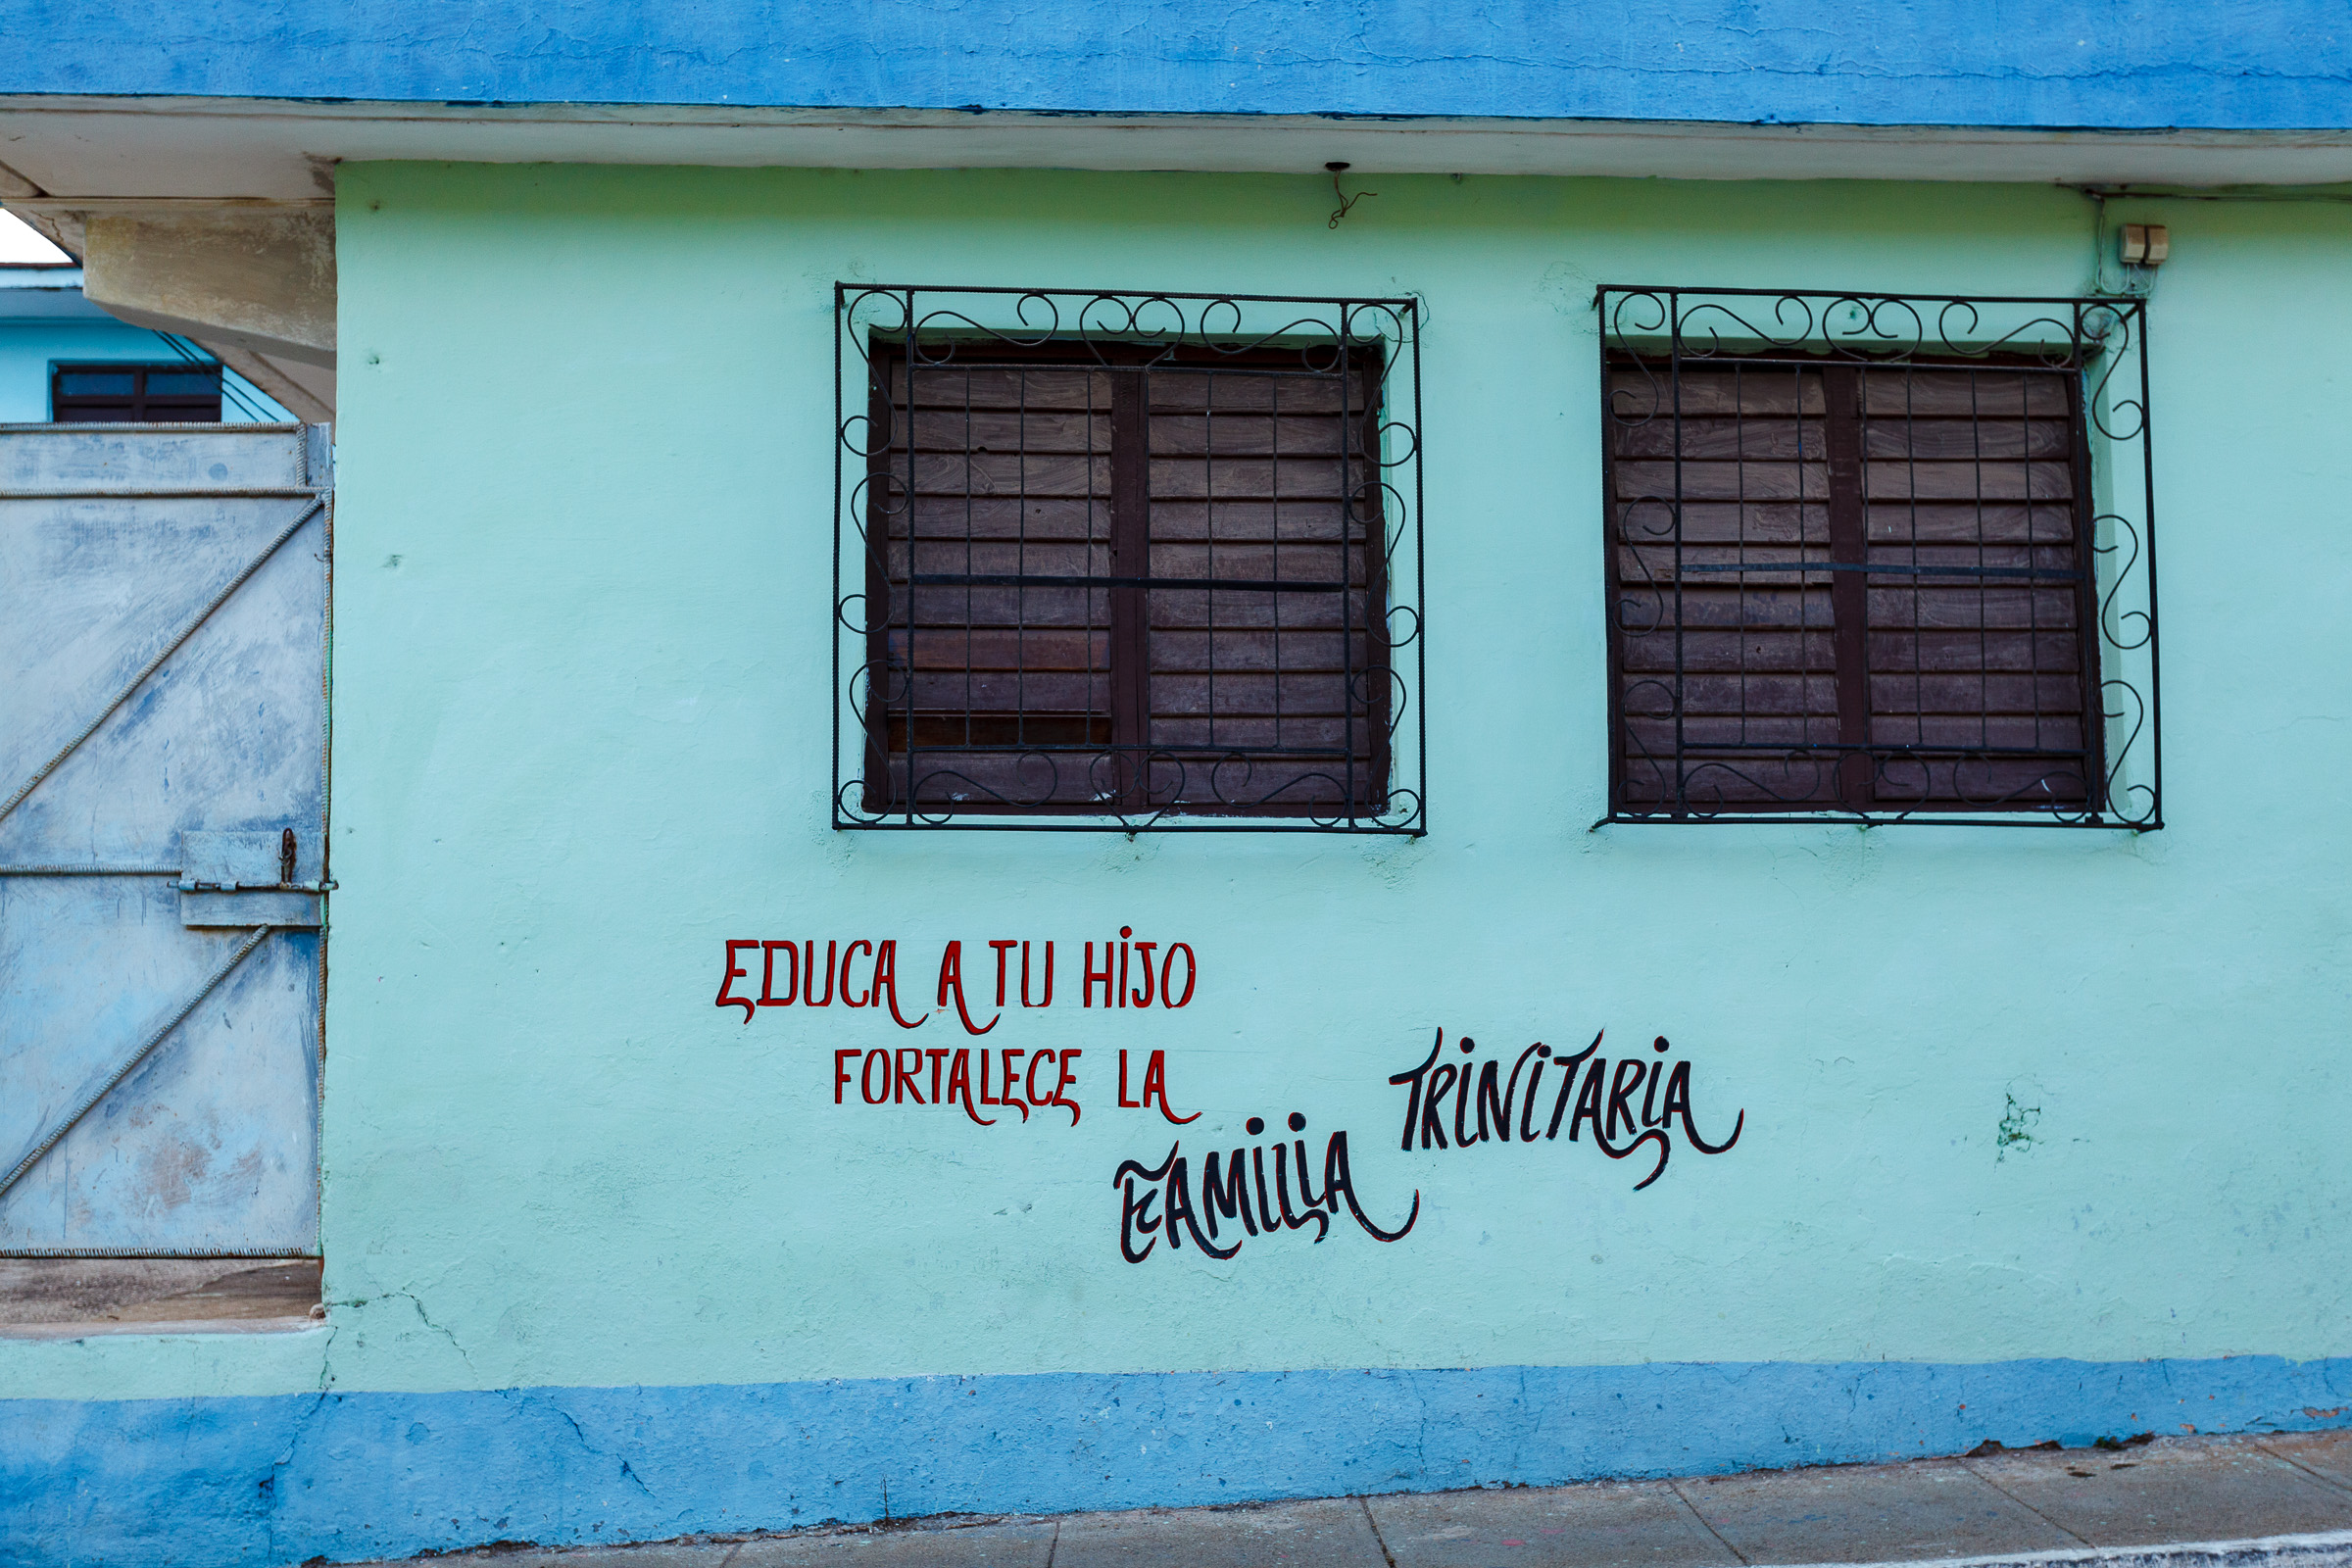 EDUCA A TU HIJO
FORTALECE LA
FAMILIA
TRINITARIA